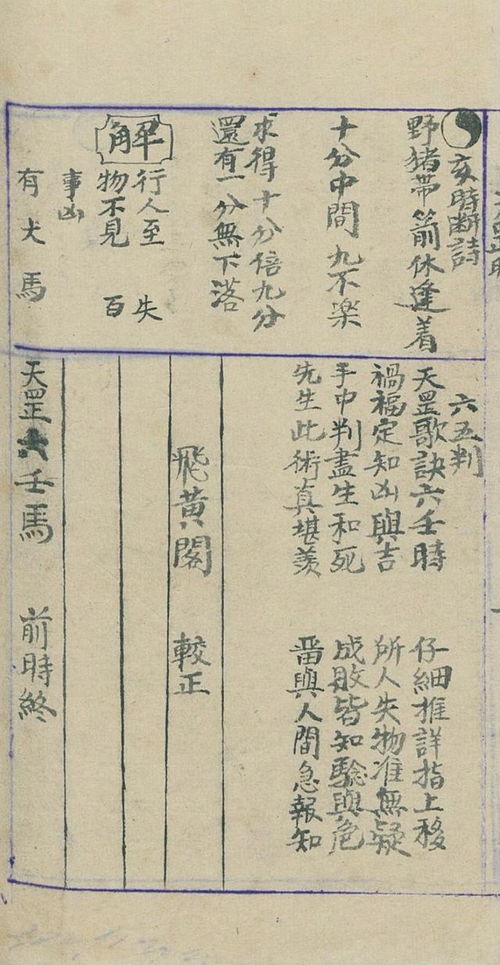 亥時断詩
野猪带箭休逢着
十分中間九不楽
求得十分倍九分
還有一分無下落
解
行人至 失
物不見 百
事凶
有犬馬
六五判
天罡歌訣六壬時 仔細推詳指上移
禍福定知凶與吉 所人失物准無疑
手中判盡生和死 成敗皆知驗與危
先生此術真堪羡 畨與人間急報知
飛黄閣 較正
天罡六壬馬 前時終